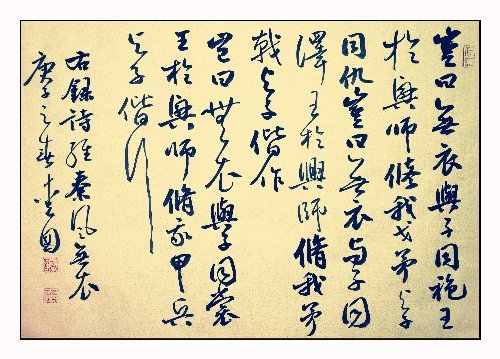 豈曰無衣與子同袍王
於興師脩我戈矛與子
同仇豈曰無衣與子同
澤王於興師脩我矛
戟與子偕作
豈曰無衣與子同裳
王於興師脩我甲兵
與子偕行
右錄詩經秦風無衣
庚子之春